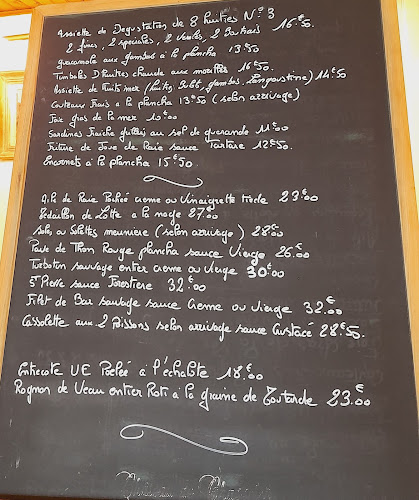 Assiette de Degustation de 8 huitres N°3 16€50.
2 fines, 2 speciales, 2
guacamole aux gambas à la plancha 13€50
Timbale D Huitres chaude aux morilles 16€50.
Assiette de fruits mer (huitre, Bulot, gambas, langoustine) 14€50
Couteaux Frais a la plancha 13€50 (selon arrivage)
Foie gras de la mer 10€00
Sardines Fraiche grillées au sel de guerande 11€00
Friture de Joue de Raie sauce Tartare 12€50.
Encornets à la plancha 15€50.
Aile de Raie Pochée creme ou Vinaigrette tiede 23€00
Medaillon de Lotte a la nage 27€00
sole ou Solettes meuniere (selon arrivage) 28€00
Pavé de Thon Rouge plancha sauce Vierge 26€00
Turbotin sauvage entier creme ou vierge 30€00
St Pierre sauce Forestiere 32€00
Filet de Bar sauvage sauce Creme ou vierge 32€00
Cassolette aux 2 Poissons selon arrivage sauce Crustacé 28€50.
Entrecote UE Poelée à l'échalote 18€00
Rognon de Veau entier Roti à la graine de Moutarde 23€00